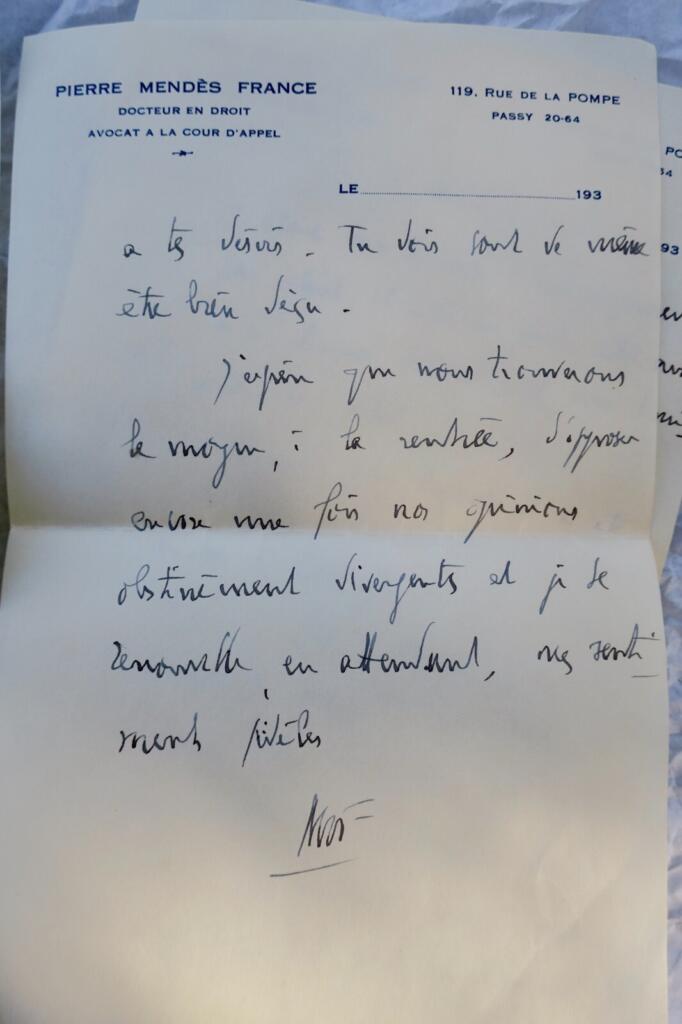 PIERRE MENDÈS FRANCE
DOCTEUR EN DROIT
AVOCAT A LA COUR D'APPEL
119, RUE DE LA POMPE
PASSY 20-64
LE 193
a tes désirs. Tu dois tout de même
être bien déçu.
J'espère que nous trouverons
le moyen, à la rentrée, d'opposer
encore une fois nos opinions
obstinément divergentes et je te
renouvelle, en attendant, mes senti-
ments fidèles